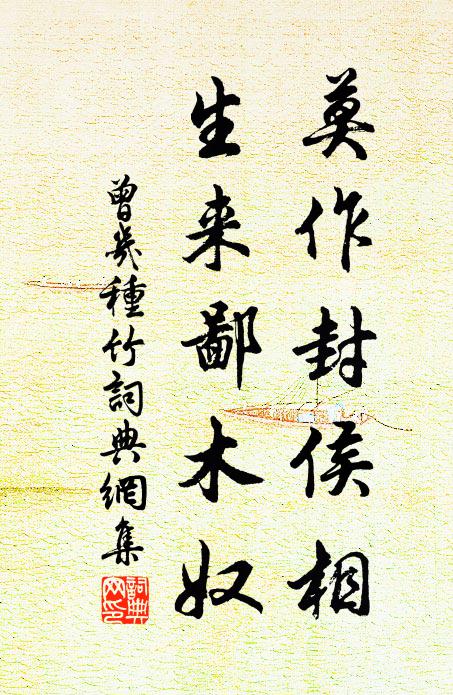 莫作封侯相
生来鄙木奴
曾幾種竹詞典網集
詞典網印